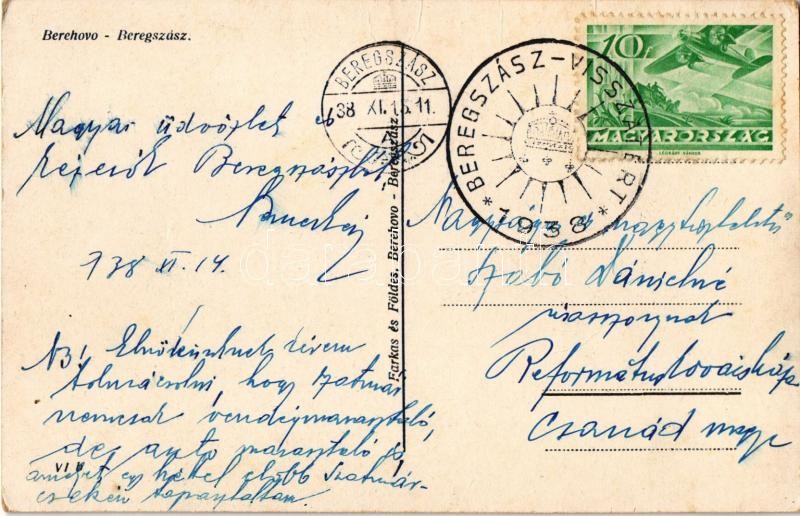 Berehovo - Beregszász.
BEREGSZÁSZ
38 XI. 11.
BEREGSZÁSZ-VISSZATÉRT
* 1938 *
10f
MAGYARORSZÁG
LÉGRÁDY SÁNDOR
Magyar üdvözlet és
Beregszászból
938 XI. 14.
NB!
tolmácsolni, hogy Szatmár
nemcsak vendégmarasztaló,
de autó marasztaló is,
amit egy héttel előbb Szatmár-
cseken tapasztaltam.
VI B
Farkas és Földes, Berehovo - Beregszász.
darabanth
Nagyságos és nagytiszteletű
Szabó Dánielné
úrasszonynak
Reformátuskovácsháza
Csanád megye